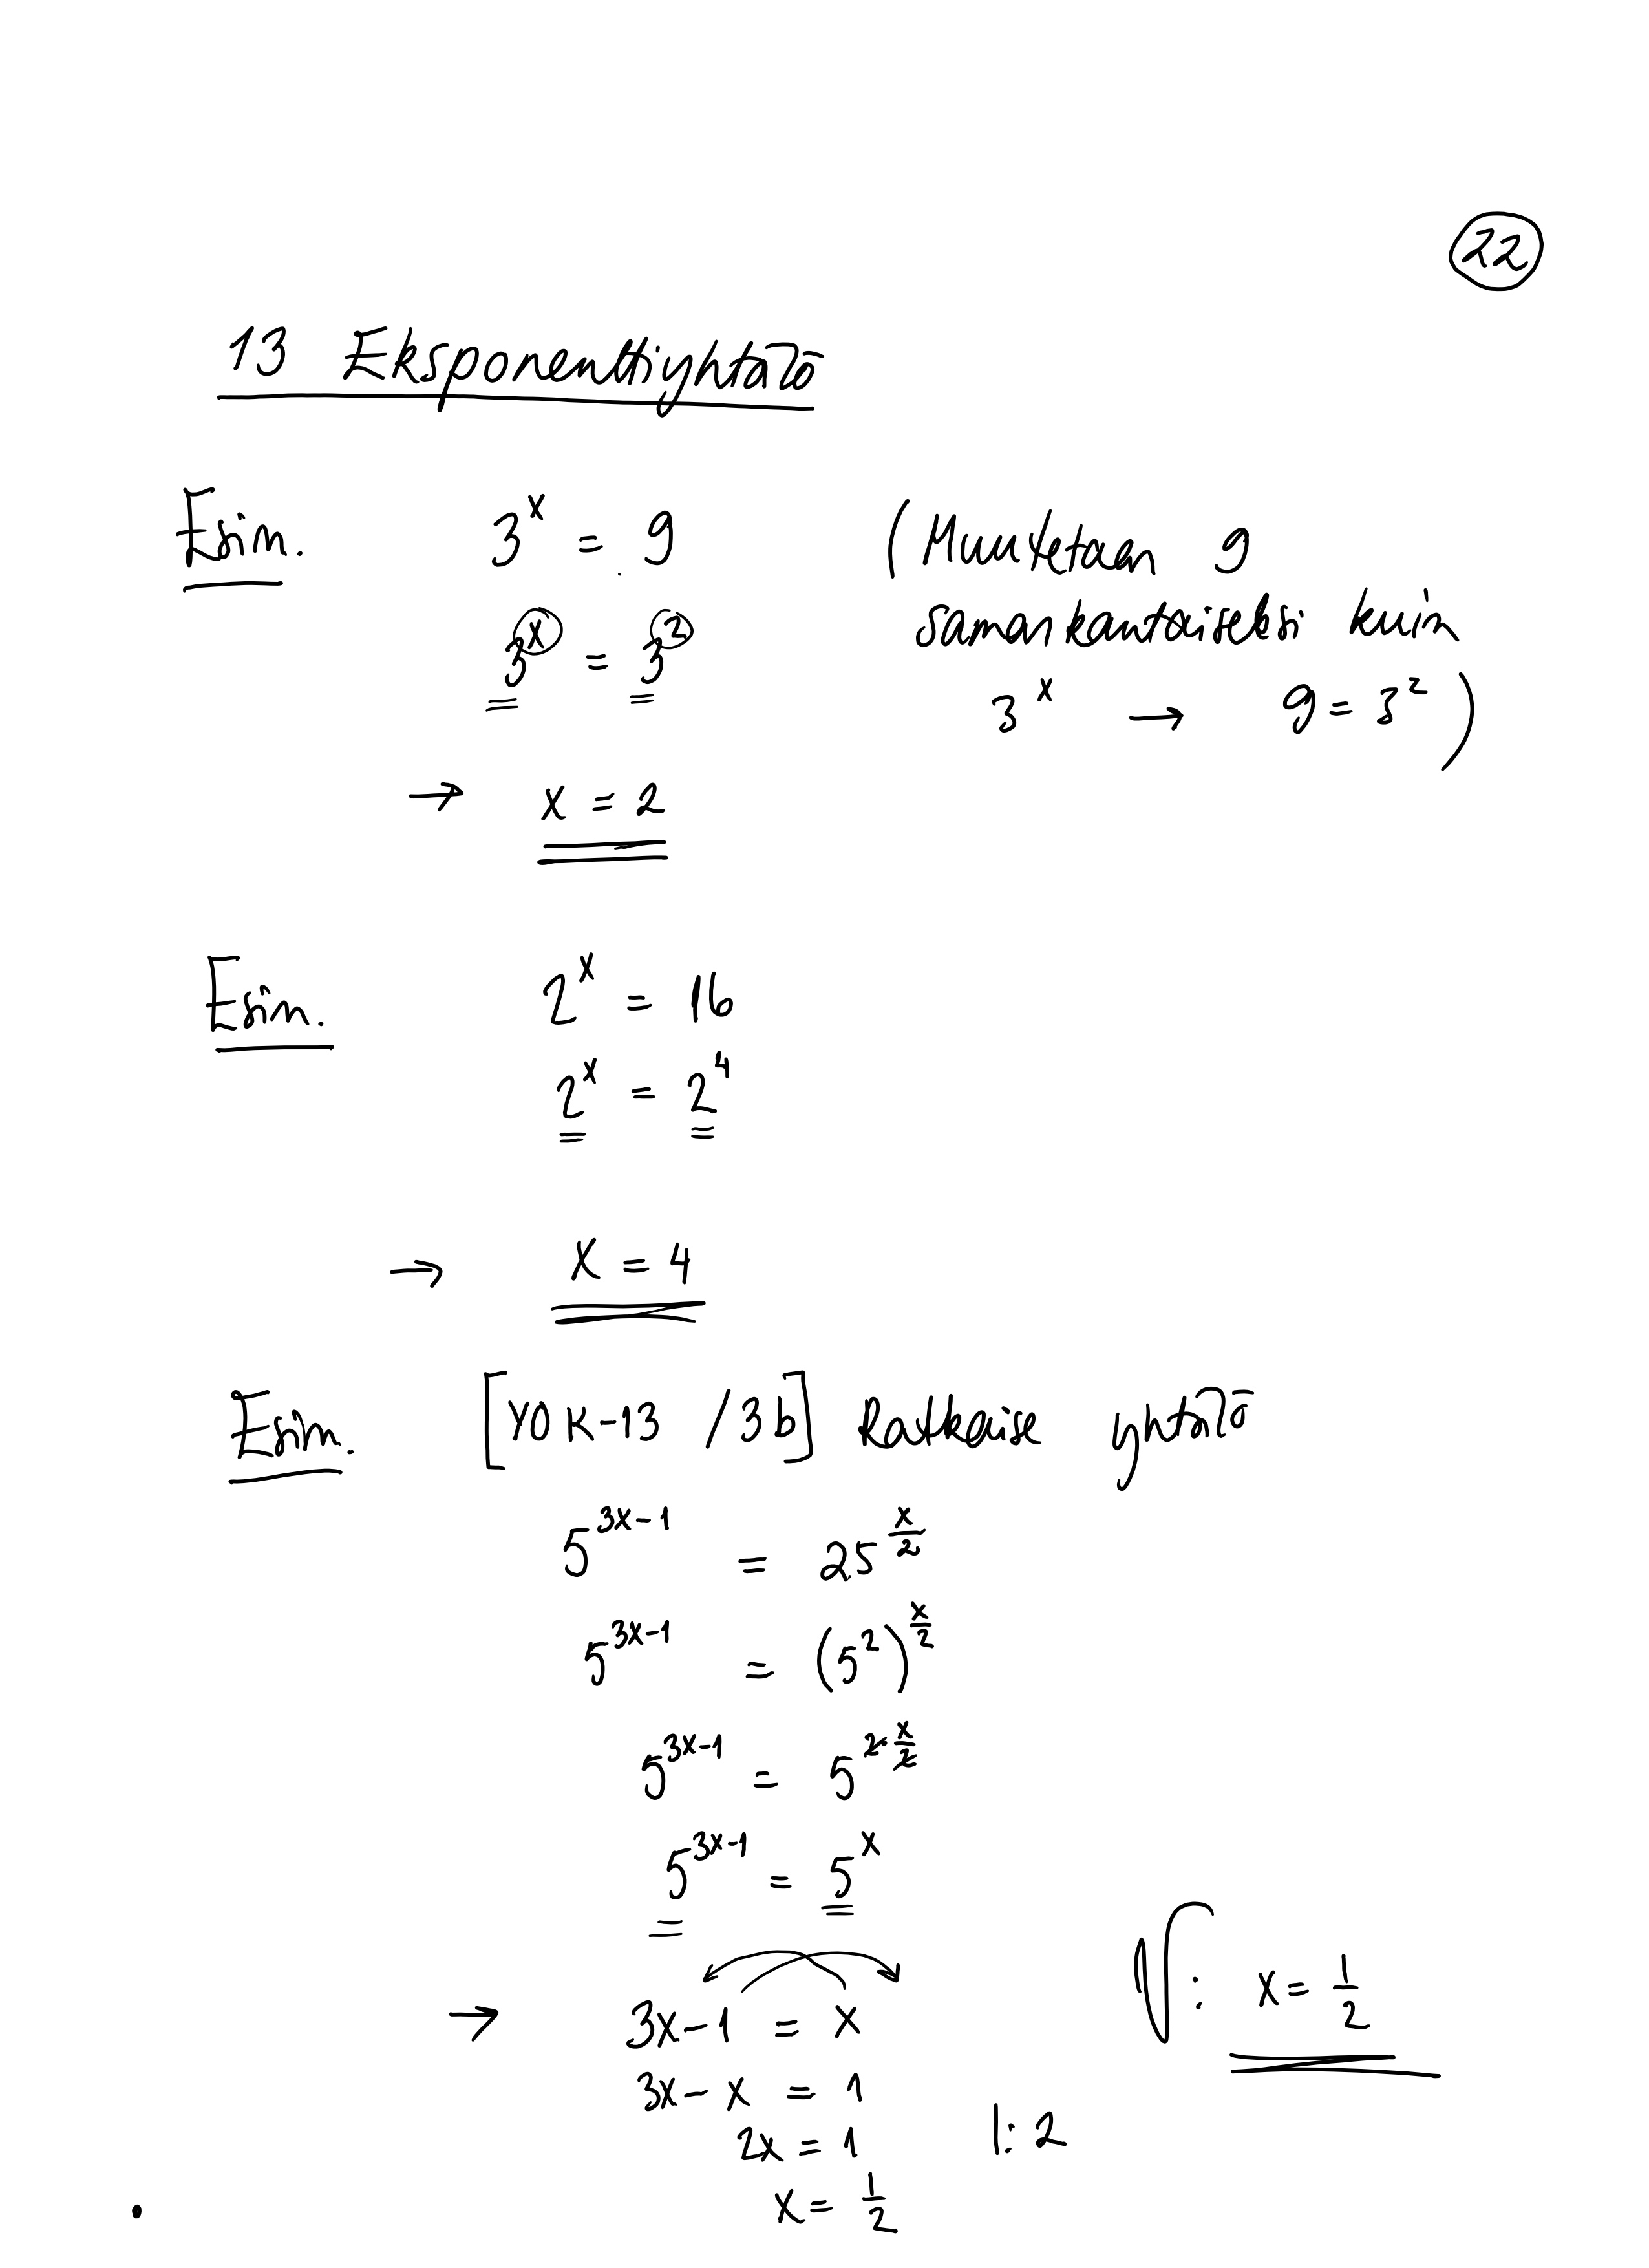 22
13 Eksponenttiyhtälö
Esim. 3^x = 9 (Muutetaan 9
3^x = 3^2 samankantaiseksi kuin
3^x → 9 = 3^2)
→ x = 2
Esim. 2^x = 16
2^x = 2^4
→ x = 4
Esim. [YO K-13 /3b] Ratkaise yhtälö
5^{3x-1} = 25^{x/2}
5^{3x-1} = (5^2)^{x/2}
5^{3x-1} = 5^{2·x/2}
5^{3x-1} = 5^x
→ 3x-1 = x V: x = 1/2
3x-x = 1
2x = 1 |:2
x = 1/2